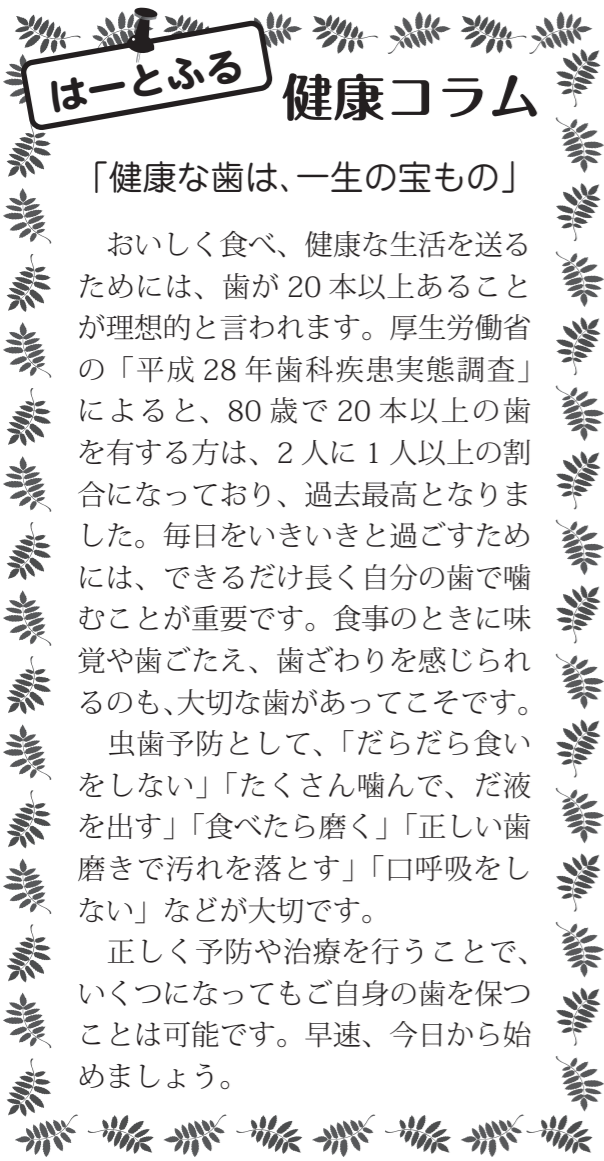 はーとふる
健康コラム
「健康な歯は、一生の宝もの」
おいしく食べ、健康な生活を送る
ためには、歯が 20 本以上あること
が理想的と言われます。厚生労働省
の「平成 28 年歯科疾患実態調査」
によると、80 歳で 20 本以上の歯
を有する方は、2 人に 1 人以上の割
合になっており、過去最高となりま
した。毎日をいきいきと過ごすため
には、できるだけ長く自分の歯で噛
むことが重要です。食事のときに味
覚や歯ごたえ、歯ざわりを感じられ
るのも、大切な歯があってこそです。
虫歯予防として、「だらだら食い
をしない」「たくさん噛んで、だ液
を出す」「食べたら磨く」「正しい歯
磨きで汚れを落とす」「口呼吸をし
ない」などが大切です。
正しく予防や治療を行うことで、
いくつになってもご自身の歯を保つ
ことは可能です。早速、今日から始
めましょう。